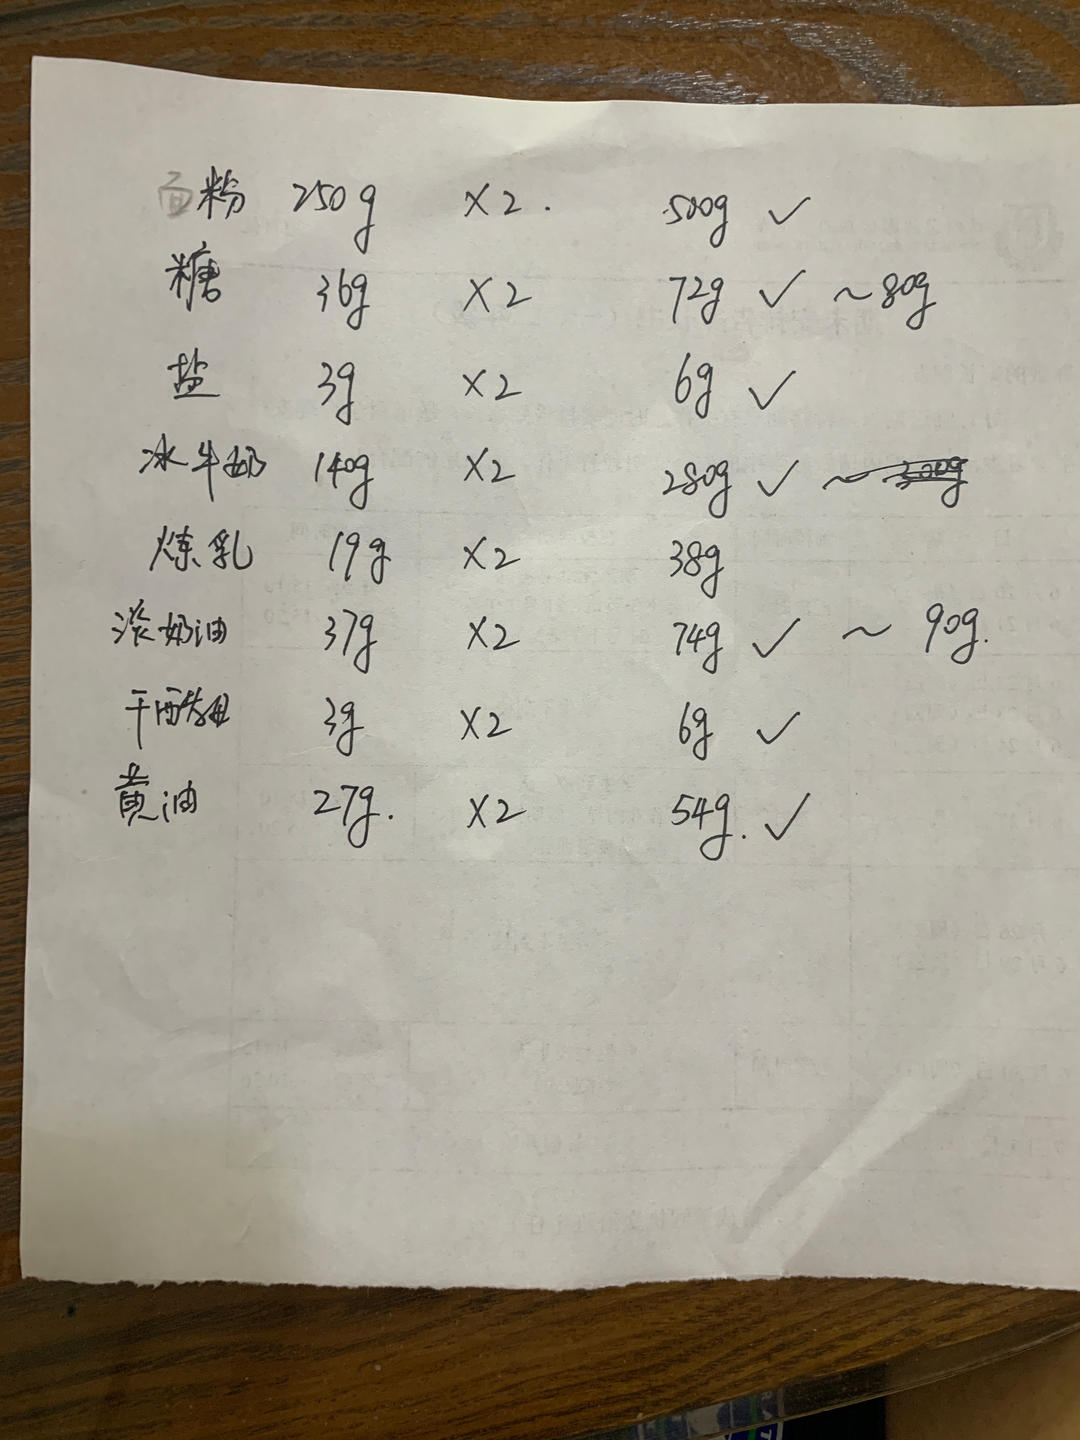 面粉 250g ×2. 500g ✓
糖 36g ×2 72g ✓ ~80g
盐 3g ×2 6g ✓
冰牛奶 140g ×2 280g ✓ ~300g
炼乳 19g ×2 38g
淡奶油 37g ×2 74g ✓ ~90g.
干酵母 3g ×2 6g ✓
黄油 27g. ×2 54g. ✓